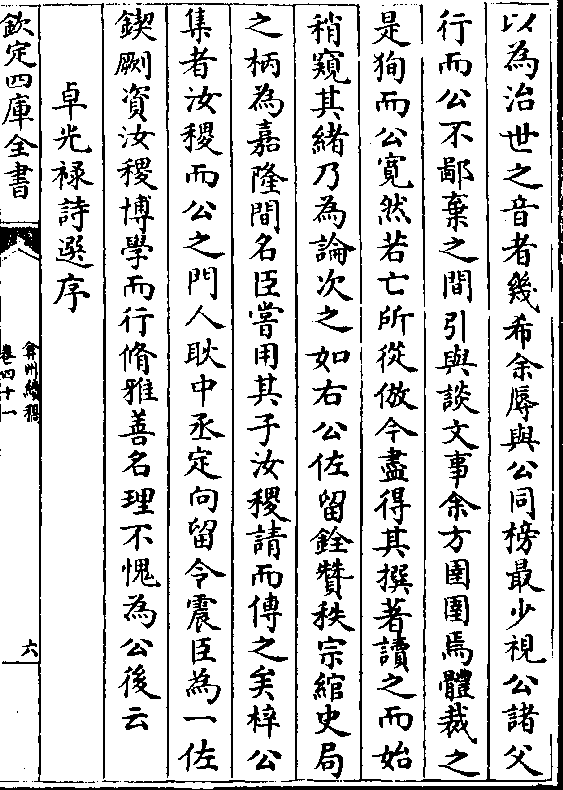 以為治世之音者幾希余辱與公同榜最少視公諸父
行而公不鄙棄之間引與談文事余方圉圉焉體裁之
是狥而公寛然若亡所從倣今盡得其撰著讀之而始
稍窺其緒乃為論次之如右公佐留銓贊秩宗綰史局
之柄為嘉隆間名臣嘗用其子汝稷請而傳之矣梓公
集者汝稷而公之門人耿中丞定向留令震臣為一佐
鍥劂資汝稷博學而行脩雅善名理不愧為公後云
卓光禄詩選序
欽定四庫全書
弇州續稿
卷四十一
六